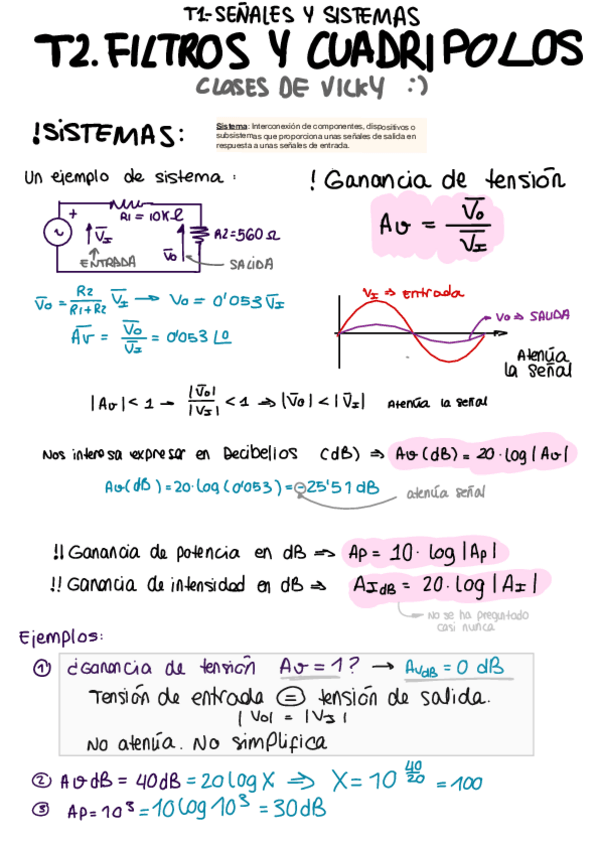 T1.-SEÑALES Y SISTEMAS
T2. FILTROS Y CUADRIPOLOS
CLASES DE VICKY :)
!SISTEMAS:
Sistema: Interconexión de componentes, dispositivos o
subsistemas que proporciona unas señales de salida en
respuesta a unas señales de entrada.
Un ejemplo de sistema:
! Ganancia de tensión
R1 = 10KΩ
+
V̅I
V̅o
R2=560 Ω
ENTRADA
SALIDA
Av = V̅o / V̅I
V̅o = R2 / R1+R2 V̅I → Vo = 0'053 V̅I
A̅v = V̅o / V̅I = 0'053 ∠0
VI => Entrada
Vo => SALIDA
Atenúa
la señal
|Av| < 1 → |V̅o| / |V̅I| < 1 => |V̅o| < |V̅I| Atenúa la señal
Nos interesa expresar en Decibelios (dB) => Av (dB) = 20·log |Av|
Av(dB) = 20·Log (0'053) = -25'51 dB
atenúa señal
!! Ganancia de potencia en dB => Ap = 10· log |Ap|
!! Ganancia de intensidad en dB => AIdB = 20·log |AI|
No se ha preguntado
casi nunca
Ejemplos:
① ¿Ganancia de tensión Av = 1? → AvdB = 0 dB
Tensión de entrada = tensión de salida.
|Vo| = |VI|
No atenúa. No simplifica
② AvdB = 40dB = 20 log X => X = 10^(40/20) = 100
③ Ap = 10³ = 10 Log 10³ = 30dB